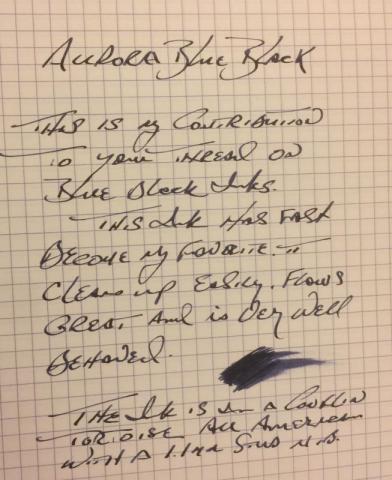 Aurora Blue Black
This is my Contribution
to your thread on
Blue Black Inks.
This Ink has fast
Become my favorite. It
Cleans up Easily. Flows
Great and is very well
Behaved.
The Ink is in a Conklin
Tortoise All American
with a 1.1mm Stub nib.